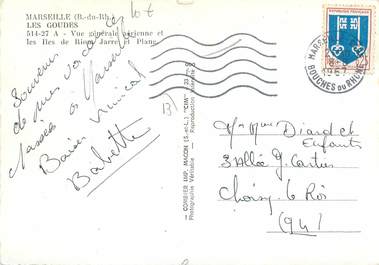 MARSEILLE (B.-du-Rh.)
LES GOUDES
514-27 A - Vue générale aérienne et
les Iles de Riou, Jarre et Plane
10 €
Souvenir
de mes vacances
à Marseille
Baiser amical
Babette
COMBIER IMP. MACON (S.-et-L.) "CIM"
Photographie Véritable - Reproduction interdite
13
REPUBLIQUE FRANCAISE
MARSEILLE
1967
BOUCHES DU RHONE
Mr Mme Diard et
Enfants
3 Allée J. Cartier
Choisy le Roi
(94)